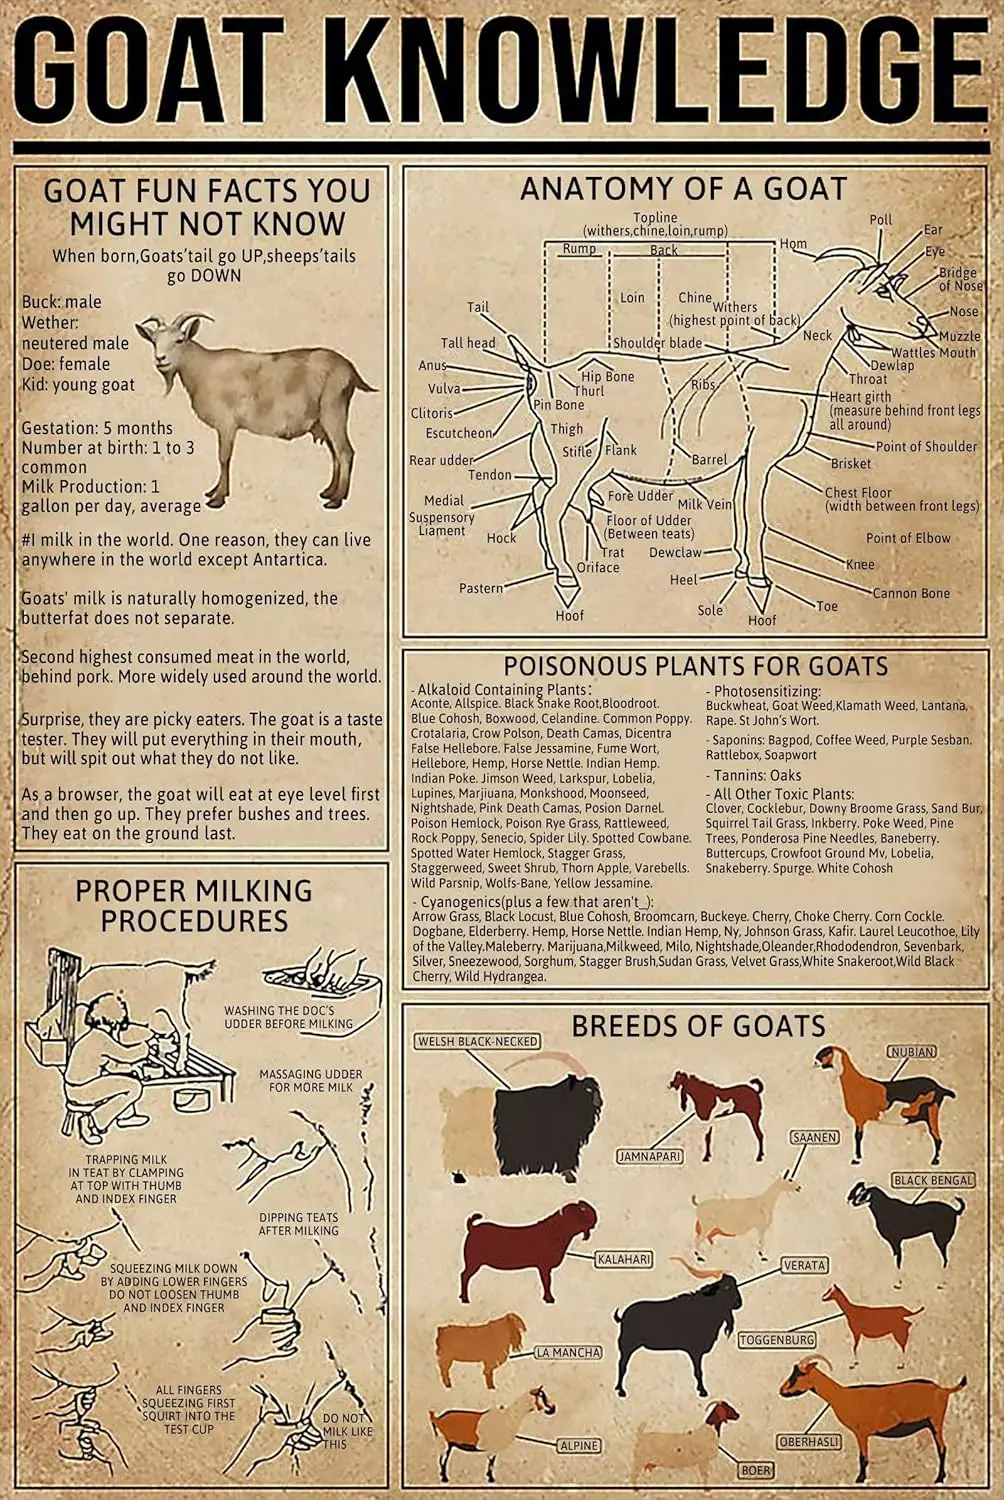 GOAT KNOWLEDGE
GOAT FUN FACTS YOU
MIGHT NOT KNOW
When born,Goats'tail go UP,sheeps'tails
go DOWN
Buck: male
Wether:
neutered male
Doe: female
Kid: young goat
Gestation: 5 months
Number at birth: 1 to 3
common
Milk Production: 1
gallon per day, average
#I milk in the world. One reason, they can live
anywhere in the world except Antartica.
Goats' milk is naturally homogenized, the
butterfat does not separate.
Second highest consumed meat in the world,
behind pork. More widely used around the world.
Surprise, they are picky eaters. The goat is a taste
tester. They will put everything in their mouth,
but will spit out what they do not like.
As a browser, the goat will eat at eye level first
and then go up. They prefer bushes and trees.
They eat on the ground last.
PROPER MILKING
PROCEDURES
WASHING THE DOC'S
UDDER BEFORE MILKING
MASSAGING UDDER
FOR MORE MILK
TRAPPING MILK
IN TEAT BY CLAMPING
AT TOP WITH THUMB
AND INDEX FINGER
DIPPING TEATS
AFTER MILKING
SQUEEZING MILK DOWN
BY ADDING LOWER FINGERS
DO NOT LOOSEN THUMB
AND INDEX FINGER
ALL FINGERS
SQUEEZING FIRST
SQUIRT INTO THE
TEST CUP
DO NOT
MILK LIKE
THIS
ANATOMY OF A GOAT
Topline
(withers,chine,loin,rump)
Rump
Back
Hom
Poll
Ear
Eye
Bridge
of Nose
Nose
Muzzle
Wattles Mouth
Dewlap
Throat
Neck
Loin
Chine
Withers
(highest point of back)
Shoulder blade
Tail
Tall head
Anus
Vulva
Clitoris
Escutcheon
Rear udder
Tendon
Medial
Suspensory
Liament
Hock
Pastern
Hoof
Hip Bone
Thurl
Pin Bone
Thigh
Stifle
Flank
Ribs
Barrel
Fore Udder
Milk Vein
Floor of Udder
(Between teats)
Trat
Oriface
Dewclaw
Heel
Sole
Hoof
Toe
Heart girth
(measure behind front legs
all around)
Point of Shoulder
Brisket
Chest Floor
(width between front legs)
Point of Elbow
Knee
Cannon Bone
POISONOUS PLANTS FOR GOATS
- Alkaloid Containing Plants:
Aconte, Allspice. Black Snake Root,Bloodroot.
Blue Cohosh, Boxwood, Celandine. Common Poppy.
Crotalaria, Crow Polson, Death Camas, Dicentra
False Hellebore. False Jessamine, Fume Wort,
Hellebore, Hemp, Horse Nettle. Indian Hemp.
Indian Poke. Jimson Weed, Larkspur, Lobelia,
Lupines, Marjiuana, Monkshood, Moonseed,
Nightshade, Pink Death Camas, Posion Darnel.
Poison Hemlock, Poison Rye Grass, Rattleweed,
Rock Poppy, Senecio, Spider Lily. Spotted Cowbane.
Spotted Water Hemlock, Stagger Grass,
Staggerweed, Sweet Shrub, Thorn Apple, Varebells.
Wild Parsnip, Wolfs-Bane, Yellow Jessamine.
- Photosensitizing:
Buckwheat, Goat Weed,Klamath Weed, Lantana,
Rape. St John's Wort.
- Saponins: Bagpod, Coffee Weed, Purple Sesban.
Rattlebox, Soapwort
- Tannins: Oaks
- All Other Toxic Plants:
Clover, Cocklebur, Downy Broome Grass, Sand Bur,
Squirrel Tail Grass, Inkberry. Poke Weed, Pine
Trees, Ponderosa Pine Needles, Baneberry.
Buttercups, Crowfoot Ground Mv, Lobelia,
Snakeberry. Spurge. White Cohosh
- Cyanogenics(plus a few that aren't_):
Arrow Grass, Black Locust, Blue Cohosh, Broomcarn, Buckeye. Cherry, Choke Cherry. Corn Cockle.
Dogbane, Elderberry. Hemp, Horse Nettle. Indian Hemp, Ny, Johnson Grass, Kafir. Laurel Leucothoe, Lily
of the Valley.Maleberry. Marijuana,Milkweed, Milo, Nightshade,Oleander,Rhododendron, Sevenbark,
Silver, Sneezewood, Sorghum, Stagger Brush,Sudan Grass, Velvet Grass,White Snakeroot,Wild Black
Cherry, Wild Hydrangea.
BREEDS OF GOATS
WELSH BLACK-NECKED
NUBIAN
JAMNAPARI
SAANEN
BLACK BENGAL
KALAHARI
VERATA
LA MANCHA
TOGGENBURG
ALPINE
BOER
OBERHASLI